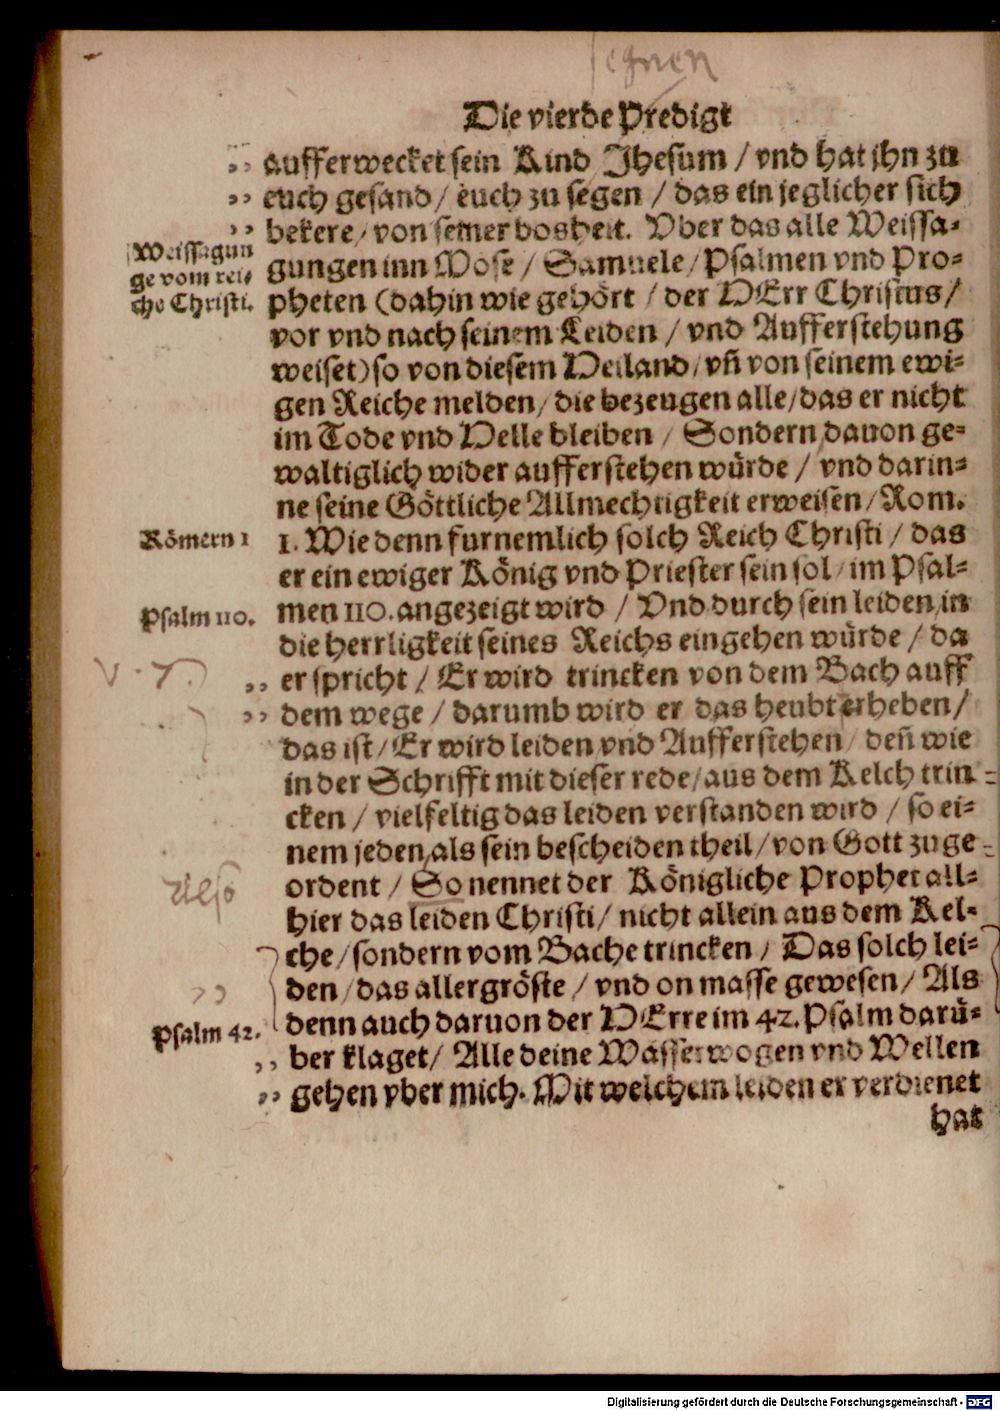 segnen
Die vierde Predigt
,, aufferwecket sein Kind Jhesum / vnd hat jhn zu
,, euch gesand / euch zu segen / das ein jeglicher sich
,, bekere / von seiner bosheit. Vber das alle Weissa-
Weissagun
ge vom rei-
che Christi.
gungen inn Mose / Samuele / Psalmen vnd Pro-
pheten (dahin wie gehört / der HErr Christus /
vor vnd nach seinem Leiden / vnd Aufferstehung
weiset) so von diesem Heiland / vñ von seinem ewi-
gen Reiche melden / die bezeugen alle / das er nicht
im Tode vnd Helle bleiben / Sondern dauon ge-
waltiglich wider aufferstehen würde / vnd darin-
ne seine Göttliche Allmechtigkeit erweisen / Rom.
Römern 1
1. Wie denn furnemlich solch Reich Christi / das
er ein ewiger König vnd Priester sein sol / im Psal-
Psalm 110.
men 110. angezeigt wird / Vnd durch sein leiden / in
die herrligkeit seines Reichs eingehen würde / da
V. 7.
,, er spricht / Er wird trincken von dem Bach auff
,, dem wege / darumb wird er das heubt erheben /
das ist / Er wird leiden vnd Aufferstehen / deñ wie
in der Schrifft mit dieser rede / aus dem Kelch trin-
cken / vielfeltig das leiden verstanden wird / so ei-
nem jeden / als sein bescheiden theil / von Gott zuge-
Also
ordent / So nennet der Königliche Prophet all-
hier das leiden Christi / nicht allein aus dem Kel-
che / sondern vom Bache trincken / Das solch lei-
den / das allergröste / vnd on masse gewesen / Als
Psalm 42.
denn auch daruon der HErre im 42. Psalm darü-
,, ber klaget / Alle deine Wasserwogen vnd Wellen
,, gehen vber mich. Mit welchem leiden er verdienet
hat
Digitalisierung gefördert durch die Deutsche Forschungsgemeinschaft - DFG